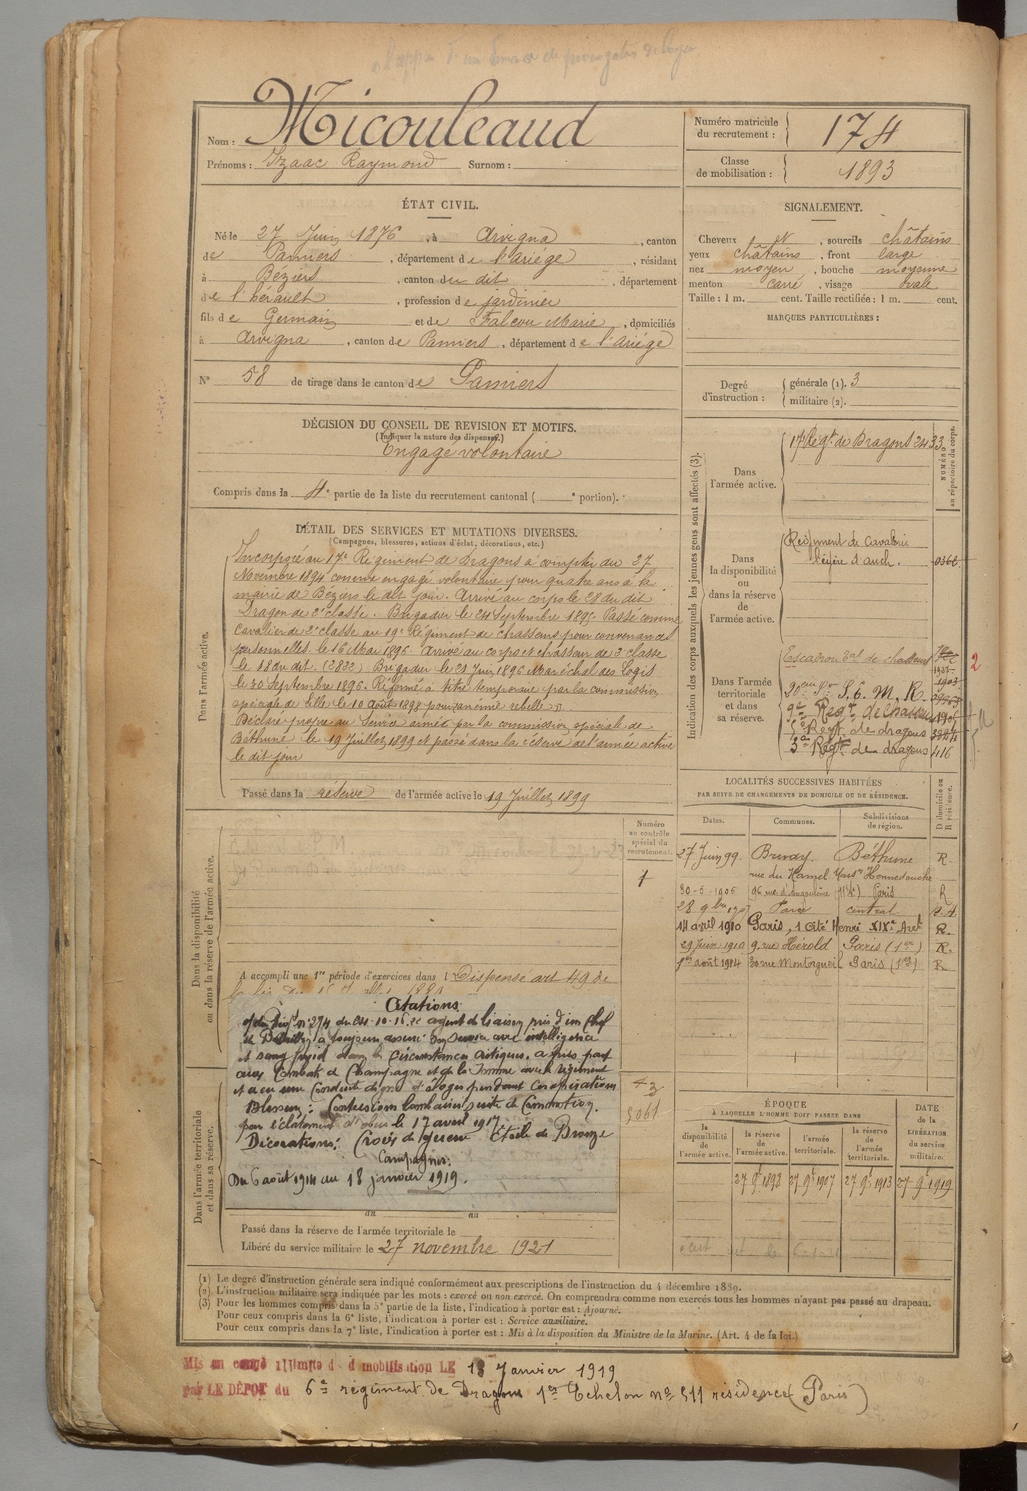 Nom : Micouleaud
Prénoms : Izaac Raymond Surnom :
Numéro matricule du recrutement : 174
Classe de mobilisation : 1893
ÉTAT CIVIL.
Né le 27 Juin 1876, à Arvigna, canton
de Pamiers, département de l'ariége, résidant
à Béziers, canton du dit, département
de l'hérault, profession de jardinier
fils de Germain et de Falcou Marie, domiciliés
à Arvigna, canton de Pamiers, département de l'ariége
N° 58 de tirage dans le canton de Pamiers
SIGNALEMENT.
Cheveux et, sourcils châtains
yeux châtains, front large
nez moyen, bouche moyenne
menton carré, visage ovale
Taille : 1 m. cent. Taille rectifiée : 1 m. cent.
MARQUES PARTICULIÈRES :
Degré d'instruction : générale (1). 3
militaire (2).
DÉCISION DU CONSEIL DE REVISION ET MOTIFS.
(Indiquer la nature des dispenses.)
Engagé volontaire
Compris dans la 4e partie de la liste du recrutement cantonal ( e portion).
DÉTAIL DES SERVICES ET MUTATIONS DIVERSES.
(Campagnes, blessures, actions d'éclat, décorations, etc.)
Dans l'armée active.
Incorporé au 17e Régiment de Dragons à compter du 27
Novembre 1894 comme engagé volontaire pour quatre ans à la
mairie de Béziers le dit jour. Arrivé au corps le 28 du dit
Dragon de 2e classe. Brigadier le 24 Septembre 1895 Passé comme
Cavalier de 2e classe au 19e Régiment de chasseurs pour convenances
personnelles le 16 Mai 1896 Arrivé au corps et chasseur de 2e classe
le 18 du dit. Brigadier le 21 Juin 1896 Maréchal des Logis
le 30 Septembre 1896. Réformé à titre temporaire par la commission
spéciale de Lille le 10 Août 1898 pour anémie rebelle
Déclaré propre au Service armée par la commission spéciale de
Béthune le 19 Juillet 1899 et passé dans la réserve de l'armée active
le dit jour
Passé dans la réserve de l'armée active le 19 Juillet 1899
Indication des corps auxquels les jeunes gens sont affectés (3).
NUMÉRO au répertoire du corps.
Dans l'armée active. 17e Regt. de Dragons 2433
Dans la disponibilité ou dans la réserve de l'armée active.
Régiment de Cavalerie
légère d'auch. 0362
Dans l'armée territoriale et dans sa réserve.
Escadron Tal de chasseurs
20eme S.E.M.R.
9e Regt. de chasseurs
Regt. de dragons
3e Régt. de dragons 416
2
LOCALITÉS SUCCESSIVES HABITÉES
PAR SUITE DE CHANGEMENTS DE DOMICILE OU DE RÉSIDENCE.
Dates. Communes. Subdivisions de région. D domicile ou R résidence.
27 Juin 99. Bruay Béthune R.
rue du Hamel
30-5-1906 96 rue d'Angoulême Paris R
28 9bre Paris central
14 avril 1910 Paris, 1 Cité Henri XIXe Arrt R.
29 Juin 1910 9 rue Hérold Paris (1er) R.
1er août 1914 30 rue Montorgueil Paris (1er) R
Dans la disponibilité ou dans la réserve de l'armée active.
Numéro au contrôle spécial du recrutement.
1
A accompli une 1re période d'exercices dans l Dispensé art 49 de
Citations.
agent de liaison près d'un Chef
a toujours assuré son service avec intelligence
et sang froid dans les circonstances critiques. a pris part
aux Combats de Champagne et de la Somme avec le régiment
et a eu une Conduite digne d'éloges pendant ces opérations
Blessure : Contusion lombaire suite de Commotion.
par l'éclatement d'obus le 17 avril 1917
Décorations : Croix de guerre Etoile de Bronze
Campagnes :
Du 6 août 1914 au 18 janvier 1919.
Dans l'armée territoriale et dans sa réserve.
du au
Passé dans la réserve de l'armée territoriale le
Libéré du service militaire le 27 novembre 1921
ÉPOQUE
À LAQUELLE L'HOMME DOIT PASSER DANS
la disponibilité de l'armée active. la réserve de l'armée active. l'armée territoriale. la réserve de l'armée territoriale.
DATE de la LIBÉRATION du service militaire.
27 9bre 1898 27 9bre 1907 27 9bre 1913 27 9bre 1919
(1) Le degré d'instruction générale sera indiqué conformément aux prescriptions de l'instruction du 4 décembre 1889.
(2) L'instruction militaire sera indiquée par les mots : exercé ou non exercé. On comprendra comme non exercés tous les hommes n'ayant pas passé au drapeau.
(3) Pour les hommes compris dans la 5e partie de la liste, l'indication à porter est : Ajourné.
Pour ceux compris dans la 6e liste, l'indication à porter est : Service auxiliaire.
Pour ceux compris dans la 7e liste, l'indication à porter est : Mis à la disposition du Ministre de la Marine. (Art. 4 de la loi.)
Mis en congé illimité de démobilisation LE 18 Janvier 1919
par LE DÉPOT du 6e régiment de Dragons 1er Echelon no 511 résidence (Paris)